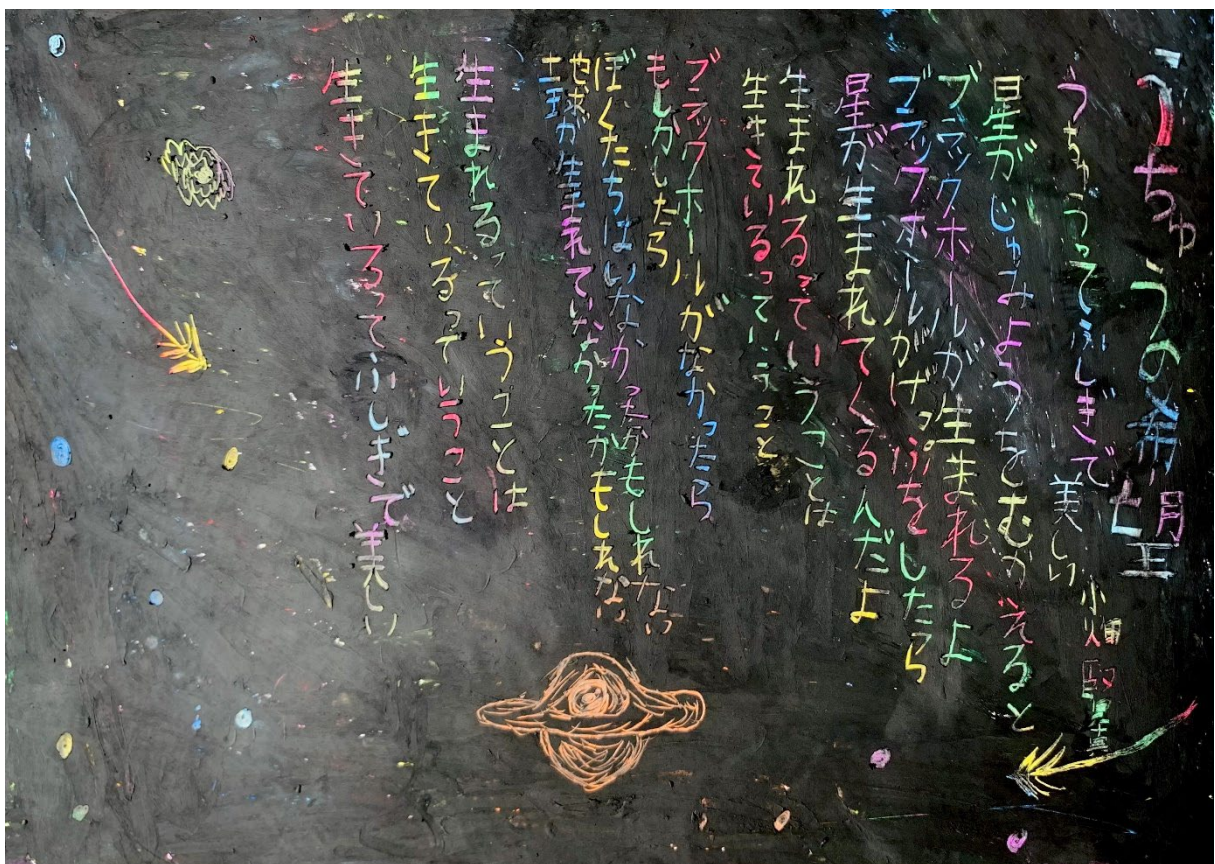 うちゅうの希望
小畑
うちゅうってふしぎで美しい
星がじゅみようをむかえると
ブラックホールが生まれるよ
ブラックホールがげっぷをしたら
星が生まれてくるんだよ
生まれるっていうことは
生きているっていうこと
ブラックホールがなかったら
もしかしたら
ぼくたちはいなかったかもしれない
地球が生まれていなかったかもしれない
生まれるっていうことは
生きているっていうこと
生きているってふしぎで美しい